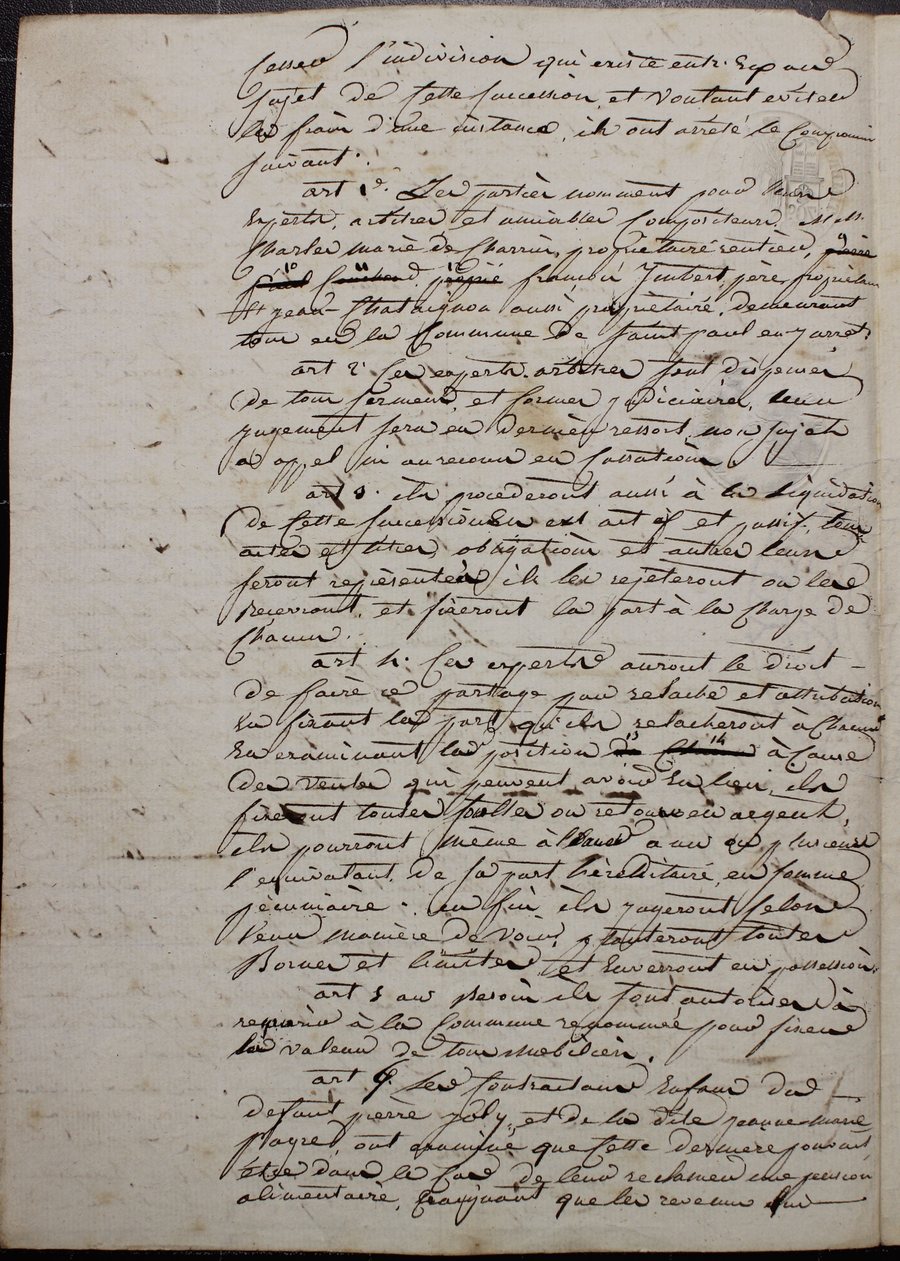 cesser l'indivision qui existe entr. Eux au
sujet de cette succession, et voulant eviter
les frais d'une instance, ils ont arrêté le compromis
suivant.
art 1er. Les parties nomment pour leurs
Experts, arbitres et amiables compositeurs, MM.
Charles marie de Charrin, propriétaire rentier,
françois Imbert, père, propriétaire
et jean Chataignon aussi propriétaire, demeurant
tous en la Commune de saint paul en jarret.
art 2. Ces experts arbitres sont dispensés
de tous serment, et formes judiciaires, leur
jugement sera en dernier ressort, non sujet
a appel ni au recours en Cassation.
art 3. ils procederont aussi à la liquidation
de cette succession En actif et passif, tous
actes et titres obligations et autres leurs
seront représentés, ils les rejeteront ou les
recevront, et fixeront la part à la charge de
Chacun.
art 4. Ces experts auront le droit
de faire ce partage par relache et attribution
En fixant la part qu'ils relacheront à Chacun
En examinant la position à Cause
des ventes qui peuvent avoir Eu lieu, ils
fixeront toutes soultes ou retours en argent,
ils pourront même à un ou plusieurs
l'equivalant de sa part héréditaire, en somme
pécuniaire. en fin, ils jugeront selon
leur manière de voir, planteront toutes
Bornes et limites, et Enverront en possession.
art 5 au besoin ils sont autorisés à
requérir à la Commune renommée pour fixer
la valeur de tous mobiliers.
art 6. Les Contractans Enfans du
defunt pierre joly, et de la dite jeanne marie
payre, ont examiné que cette dernière pouvait
être dans le Cas de leur reclamer une pension
alimentaire, Craignant que les revenus